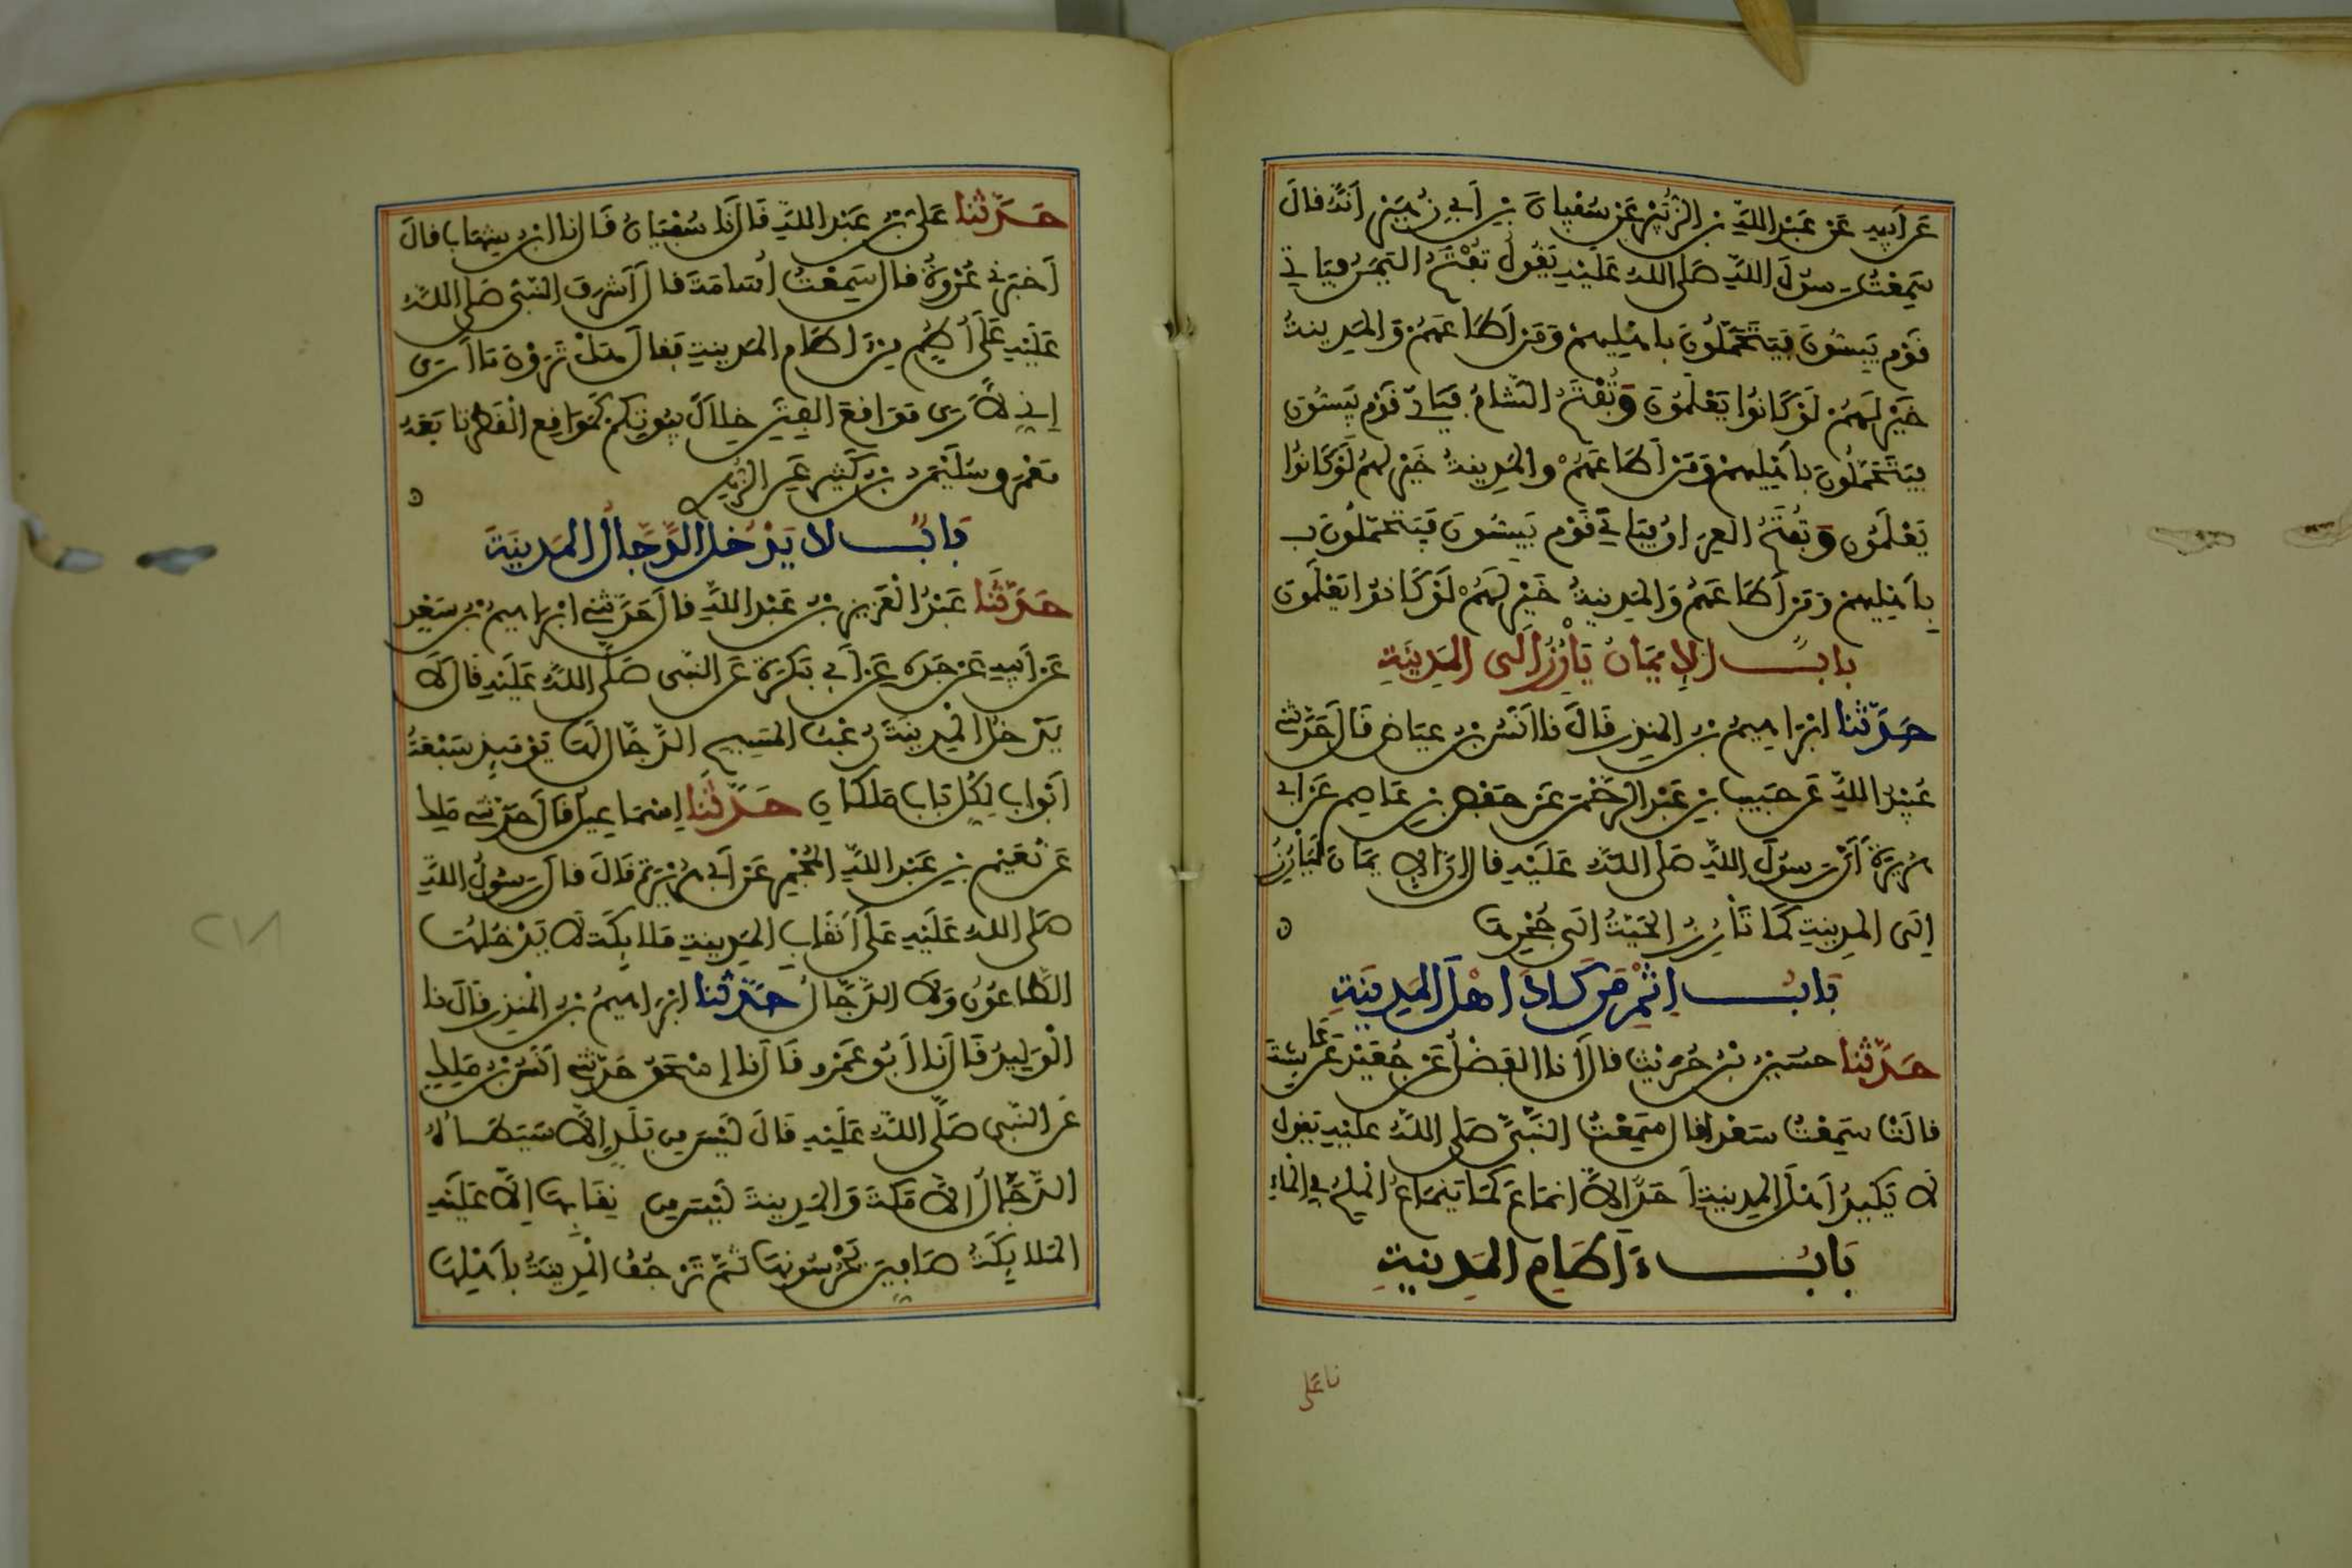 عَن اَبِيهِ عَن عَبْدِ اللَّهِ بنِ الزُّبَيْرِ عَن سُفْيَانَ بنِ اَبِي زُهَيْرٍ اَنَّهُ قالَ
سَمِعْتُ رَسُولَ اللَّهِ صَلى اللهُ عَلَيْهِ يَقُولُ تُفْتَحُ اليَمَنُ فيَاتي
قَوْم يَبِسُّونَ فيَتَحَمَّلُونَ باهْلِيهِمْ وَمَن اَطَاعَهُمْ وَالمَدِينةُ
خَيْر لَهُمْ لَوْ كَانُوا يَعْلَمُونَ وَتُفْتَحُ الشَّامُ فيَاتي قَوْم يَبِسُّونَ
فيَتَحَمَّلُونَ بِاَهْلِيهِمْ وَمَن اَطَاعَهُمْ وَالمَدِينةُ خَيْر لهُمْ لَوْ كَانُوا
يَعْلَمُونَ وَتُفْتَحُ العِرَاقُ فيَاتي قَوْم يَبِسُّونَ فيَتَحَمَّلُونَ بـ
بِاَهْلِيهِمْ وَمَن اَطَاعَهُمْ وَالمَدِينةُ خَيْر لَهُمْ لَوْ كَانُوا يَعْلَمُونَ
بابٌ الاِيمَانُ يَاْرِزُ اِلَى المَدِينَةِ
حَدَّثنا ابْرَاهِيمُ بنُ المنذِرِ قَالَ نا اَنَسُ بنُ عِيَاضٍ قَالَ حَدَّثني
عُبَيْدُ اللَّهِ عَن خبيبِ بنِ عَبْدِ الرَّحْمَنِ عَن حَفْصِ بنِ عَاصِمٍ عَن ابى
هُرَيْرَةَ اَنَّ رَسُولَ اللَّهِ صَلى اللهُ عَلَيْهِ قالَ اِنَّ الايمَانَ لَيَاْرِزُ
اِلَى المدِينةِ كَمَا تَاْرِزُ الحَيَّةُ اِلَى جُحْرِهَا
بَابُ اِثْمِ مَن كَادَ اهْلَ المَدِينَةِ
حَدَّثنا حسَيْنُ بْنُ حُرَيْثٍ قالَ اَنا الفَضْلُ عَن جُعَيْدٍ عَن عَايِشَةَ
قالَتْ سَمِعْتُ سَعْداً قالَ سَمِعْتُ النَّبِيَّ صَلى اللهُ عليْهِ يَقُولُ
لاَ يَكِيدُ اَهْلَ المدِينةِ اَحَدٌ اِلاَّ انمَاعَ كَمَا يَنمَاعُ المِلْحُ في المَاءِ
بَابُ ءَاطَامِ المَدِينةِ
نا عَلى
حَدَّثنا عَليُّ بنُ عَبْدِ اللَّهِ قَالَ نَا سُفْيَانُ قَالَ نا ابنُ شِهَابٍ قالَ
اَخبَرَني عُرْوَةُ قالَ سَمِعْتُ اُسَامَةَ قالَ اَشْرَفَ النَّبِيُّ صَلى اللهُ
عَلَيْهِ عَلَى اُطُمٍ مِنْ اطَامِ المَدِينةِ فقالَ هَلْ تَرَوْنَ مَا اَرَى
اِنِّي لاَرَى مَوَاقِعَ الفِتَنِ خِلاَلَ بُيُوتِكُمْ كَمَوَاقِعِ الْقَطْرِ تَابَعَهُ
مَعْمَر وسُلَيْمَنُ بنُ كَثيرٍ عَنِ الزُّهْرِي
بَابٌ لا يَدْخُلُ الدَّجَّالُ المَدِينَةَ
حَدَّثَنا عَبْدُ الْعَزِيزِ بنُ عَبْدِ اللَّهِ قالَ حَدَّثَني ابْرَاهِيمُ بنُ سَعْدٍ
عَن اَبِيهِ عَن جَدِّهِ عَن اَبي بَكْرَةَ عَن النَّبِي صَلَّى اللهُ عَلَيْهِ قَالَ لاَ
يَدْخُلُ الْمَدِينَةَ رُعْبُ المَسِيحِ الدَّجَّالِ لَهَا يَوْمَيِذٍ سَبْعَةُ
اَبْوَابٍ لِكُلِّ بَابٍ مَلَكَانِ حَدَّثنَا اِسْمَاعِيلُ قالَ حَدَّثني مَلِك
عَن نُعَيْمِ بنِ عَبْدِ اللَّهِ المُجْمِرِ عَن اَبي هُرَيْرَةَ قَالَ قالَ رَسُولُ اللَّهِ
صَلى اللهُ عَلَيْهِ عَلَى اَنقَابِ المَدِينةِ مَلايِكَة لاَ يَدْخُلُهَا
الطَّاعُونُ وَلاَ الدَّجَّالُ حَدَّثنا ابْرَاهِيمُ بنُ المنذِرِ قَالَ نا
الْوَلِيدُ قَالَ نا اَبُو عَمْرٍو قَالَ نا اِسْحَقُ حَدَّثني اَنَسُ بْنُ مَلِكٍ
عَن النَّبِي صَلَّى اللهُ عَلَيْهِ قَالَ لَيْسَ مِن بَلَدٍ اِلاَّ سَيَطَؤُهُ
الدَّجَّالُ اِلاَّ مَكَّةَ وَالمَدِينةَ لَيْسَ مِن نِقَابِهَا اِلاَّ عَلَيْهِ
المَلايِكَةُ صَافِّينَ يَحْرُسُونَهَا ثمَّ تَرْجُفُ الْمَدِينَةُ بِاَهْلِهَا